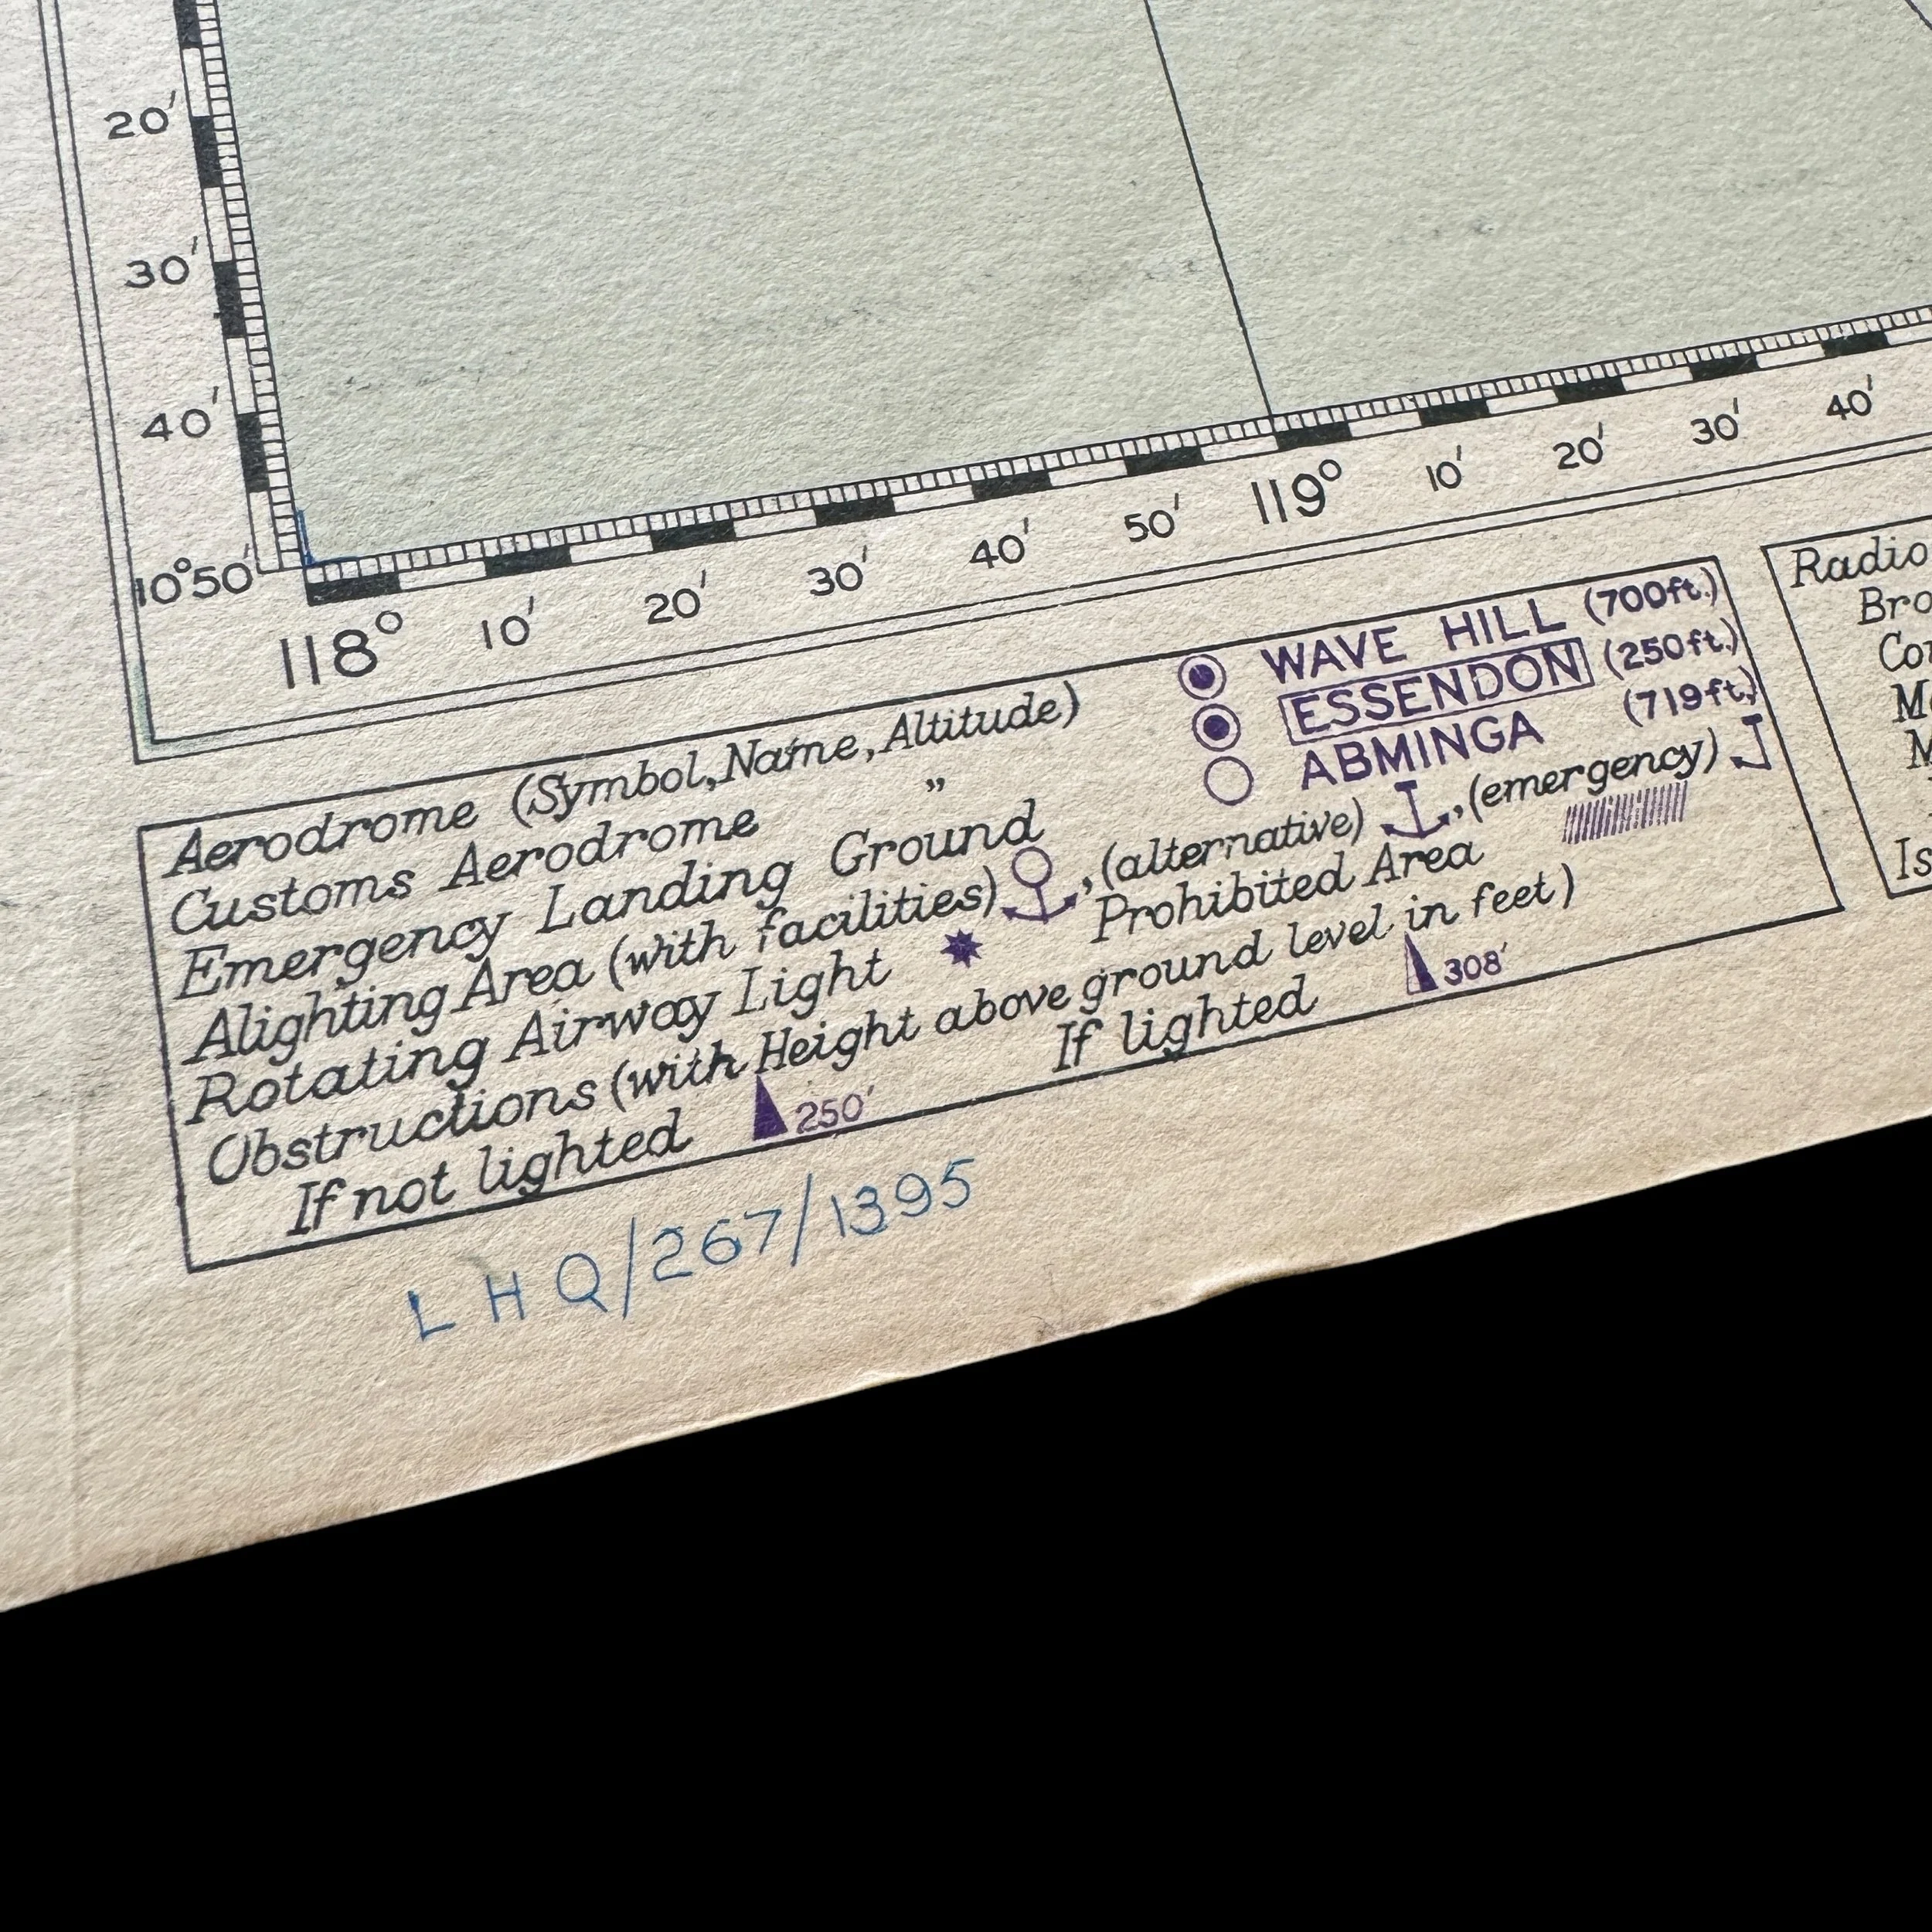 20'
30'
40'
10°50'
118° 10' 20' 30' 40' 50' 119° 10' 20' 30' 40'
Aerodrome (Symbol, Name, Altitude) WAVE HILL (700ft.)
Customs Aerodrome " ESSENDON (250ft.)
Emergency Landing Ground ABMINGA (719ft.)
Alighting Area (with facilities) , (alternative) , (emergency)
Rotating Airway Light Prohibited Area
Obstructions (with Height above ground level in feet)
If not lighted 250' If lighted 308'
Radio
LHQ/267/1395